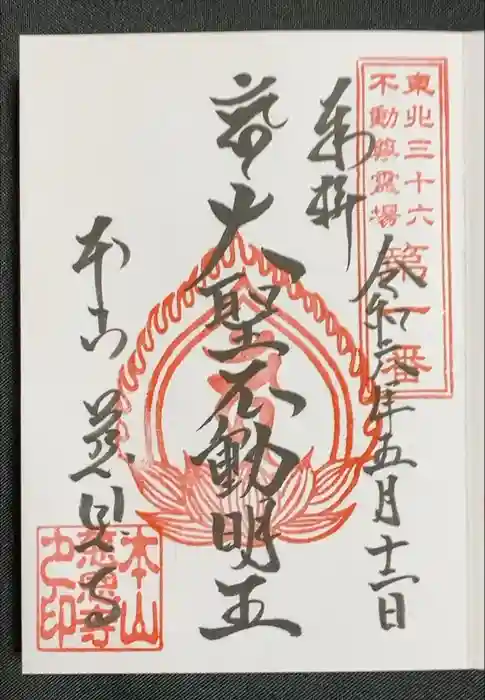 東北三十六
不動尊靈場
第一番
奉拝
令和六年五月十二日
大聖不動明王
本山 慈恩寺
本山
慈恩寺
之印